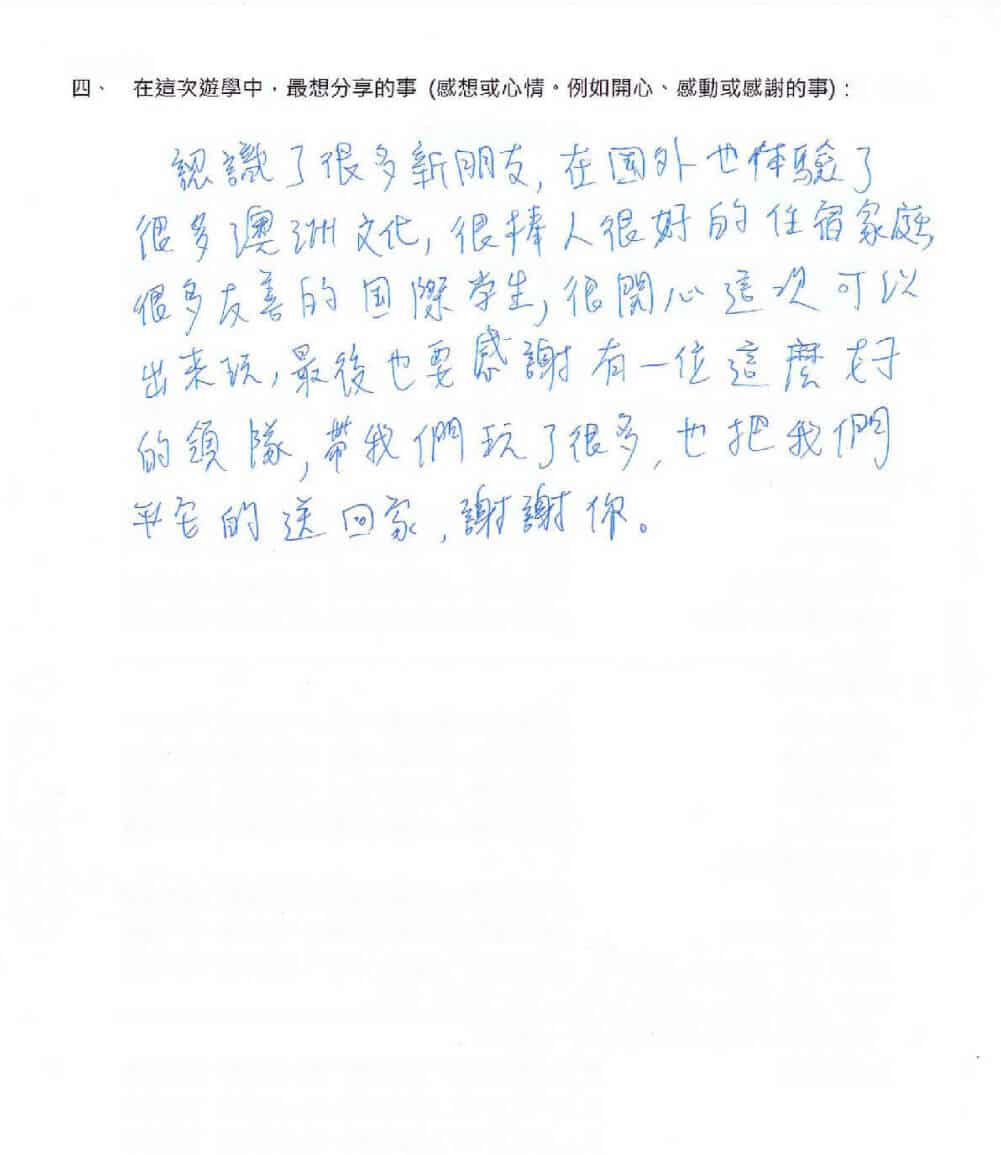 四、 在這次遊學中，最想分享的事 (感想或心情。例如開心、感動或感謝的事)：
認識了很多新朋友, 在國外也体驗了
很多澳洲文化, 很棒人很好的住宿家庭,
很多友善的国際学生, 很開心這次可以
出来玩, 最後也要感謝有一位這麼好
的領隊, 帶我們玩了很多, 也把我們
平安的送回家, 謝謝你。